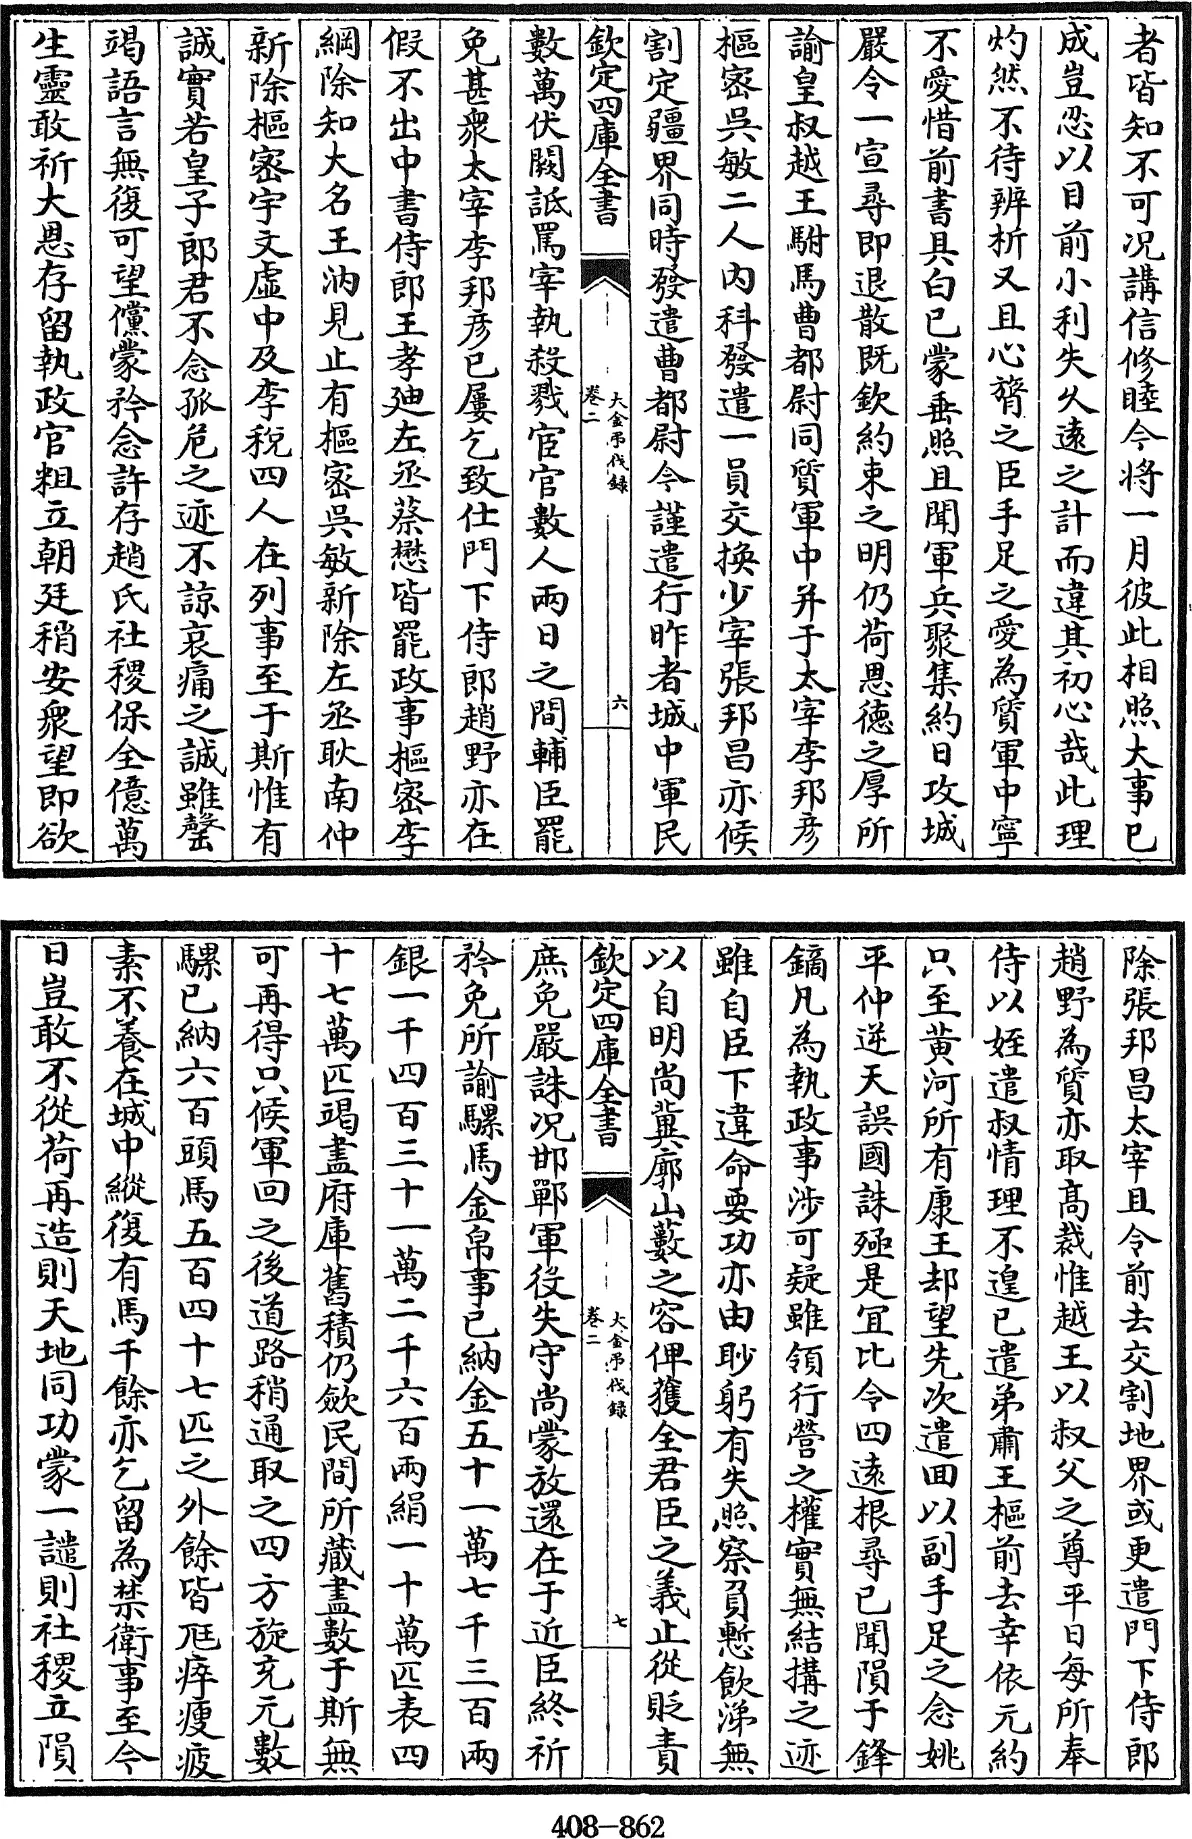 者皆知不可况講信修睦今将一月彼此相照大事已
成豈忍以目前小利失久遠之計而違其初心哉此理
灼然不待辨析又且心膂之臣手足之愛為質軍中寧
不愛惜前書具白已蒙垂照且聞軍兵聚集約日攻城
嚴令一宣尋即退散既欽約束之明仍荷恩德之厚所
諭皇叔越王駙馬曹都尉同質軍中并于太宰李邦彦
樞密吳敏二人内科發遣一員交換少宰張邦昌亦候
割定疆界同時發遣曹都尉今謹遣行昨者城中軍民
欽定四庫全書
大金弔伐錄
卷二
六
數萬伏闕詆罵宰執殺戮宦官數人兩日之間輔臣罷
免甚衆太宰李邦彦已屢乞致仕門下侍郎趙野亦在
假不出中書侍郎王孝廸左丞蔡懋皆罷政事樞密李
綱除知大名王汭見止有樞密吳敏新除左丞耿南仲
新除樞密宇文虛中及李梲四人在列事至于斯惟有
誠實若皇子郎君不念孤危之迹不諒哀痛之誠雖罄
竭語言無復可望儻蒙矜念許存趙氏社稷保全億萬
生靈敢祈大恩存留執政官粗立朝廷稍安衆望即欲
除張邦昌太宰且令前去交割地界或更遣門下侍郎
趙野為質亦取髙裁惟越王以叔父之尊平日每所奉
侍以姪遣叔情理不遑已遣弟肅王樞前去幸依元約
只至黄河所有康王却望先次遣回以副手足之念姚
平仲逆天誤國誅殛是宜比令四遠根尋已聞隕于鋒
鏑凡為執政事涉可疑雖領行營之權實無結搆之迹
雖自臣下違命要功亦由眇躬有失照察負慙飲涕無
以自明尚冀廓山藪之容俾獲全君臣之義止從貶責
欽定四庫全書
大金弔伐錄
卷二
七
庶免嚴誅况邯鄲軍役失守尚蒙放還在于近臣終祈
矜免所諭騾馬金帛事已納金五十一萬七千三百兩
銀一千四百三十一萬二千六百兩絹一十萬匹表四
十七萬匹竭盡府庫舊積仍斂民間所藏盡數于斯無
可再得只候軍回之後道路稍通取之四方旋充元數
騾已納六百頭馬五百四十七匹之外餘皆尫瘁瘦疲
素不養在城中縱復有馬千餘亦乞留為禁衛事至今
日豈敢不從荷再造則天地同功蒙一譴則社稷立隕
408-862